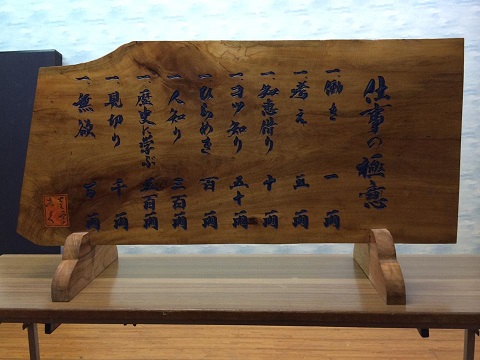 仕事の極意
一、働き 一両
一、考え 五両
一、知恵借り 十両
一、コツ知り 五十両
一、ひらめき 百両
一、人知り 三百両
一、歴史に学ぶ 五百両
一、見切り 千両
一、無欲 萬両